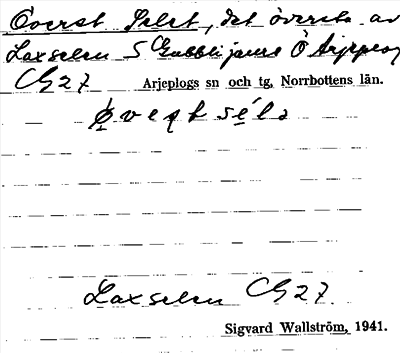 Överst Selet, det översta av
Laxselen S Gubblijaure Ö Arjeplog
CG27
Arjeplogs sn och tg, Norrbottens län.
Laxselen CG27.
Sigvard Wallström, 1941.